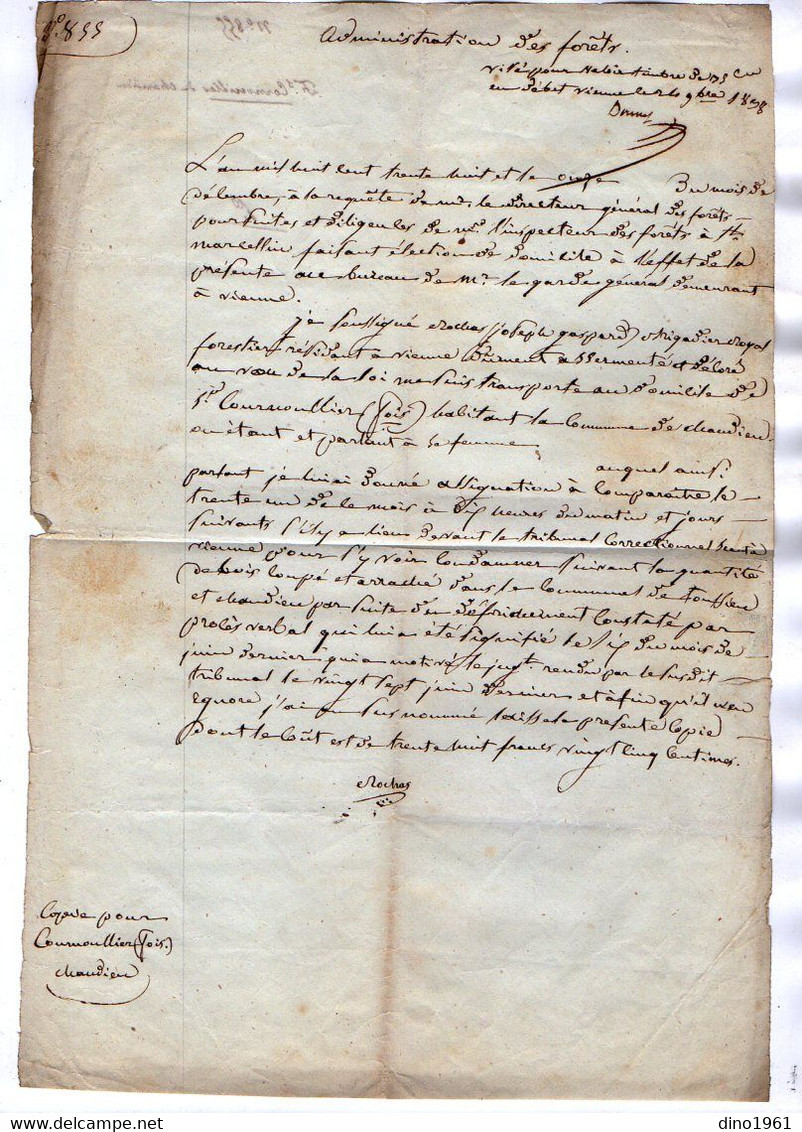 N°. 855
Administration des forêts.
visé pour valoir timbre de 75 c
en débet vienne le 24 9bre 1838
L'an mil huit cent trente huit et le onze du mois de
décembre, à la requête de mr. le directeur général des forêts –
poursuites et diligences de mr. l'inspecteur des forêts à St.
marcellin faisant élection de domicile à l'effet de la
présente au bureau de Mr. le garde général demeurant
à vienne.
je soussigné Rochas joseph gaspard brigadier royal
forestier résidant à vienne dûment assermenté et décoré
au vœu de la loi me suis transporté au domicile de
Sr. Cournoullier (fois) habitant la commune de chandieu
où étant et parlant à sa femme
auquel ainsi
parlant je lui ai donné assignation à comparaître le –
trente un de ce mois à dix heures du matin et jours –
suivants s'il y a lieu devant le tribunal correctionnel séant à
vienne pour s'y voir condamner suivant la quantité
de bois coupé et arraché dans le communal de toussieu
et chandieu par suite d'un défrichement constaté par
procès verbal qui lui a été signifié le six du mois de
juin dernier qui a motivé le jugt. rendu par le susdit –
tribunal le vingt sept juin dernier et afin qu'il n'en
ignore j'ai au sus nommé laissé la présente copie
dont le coût est de trente huit francs vingt cinq centimes.
Rochas
Copie pour
Cournoullier (fois.)
chandieu
dino1961